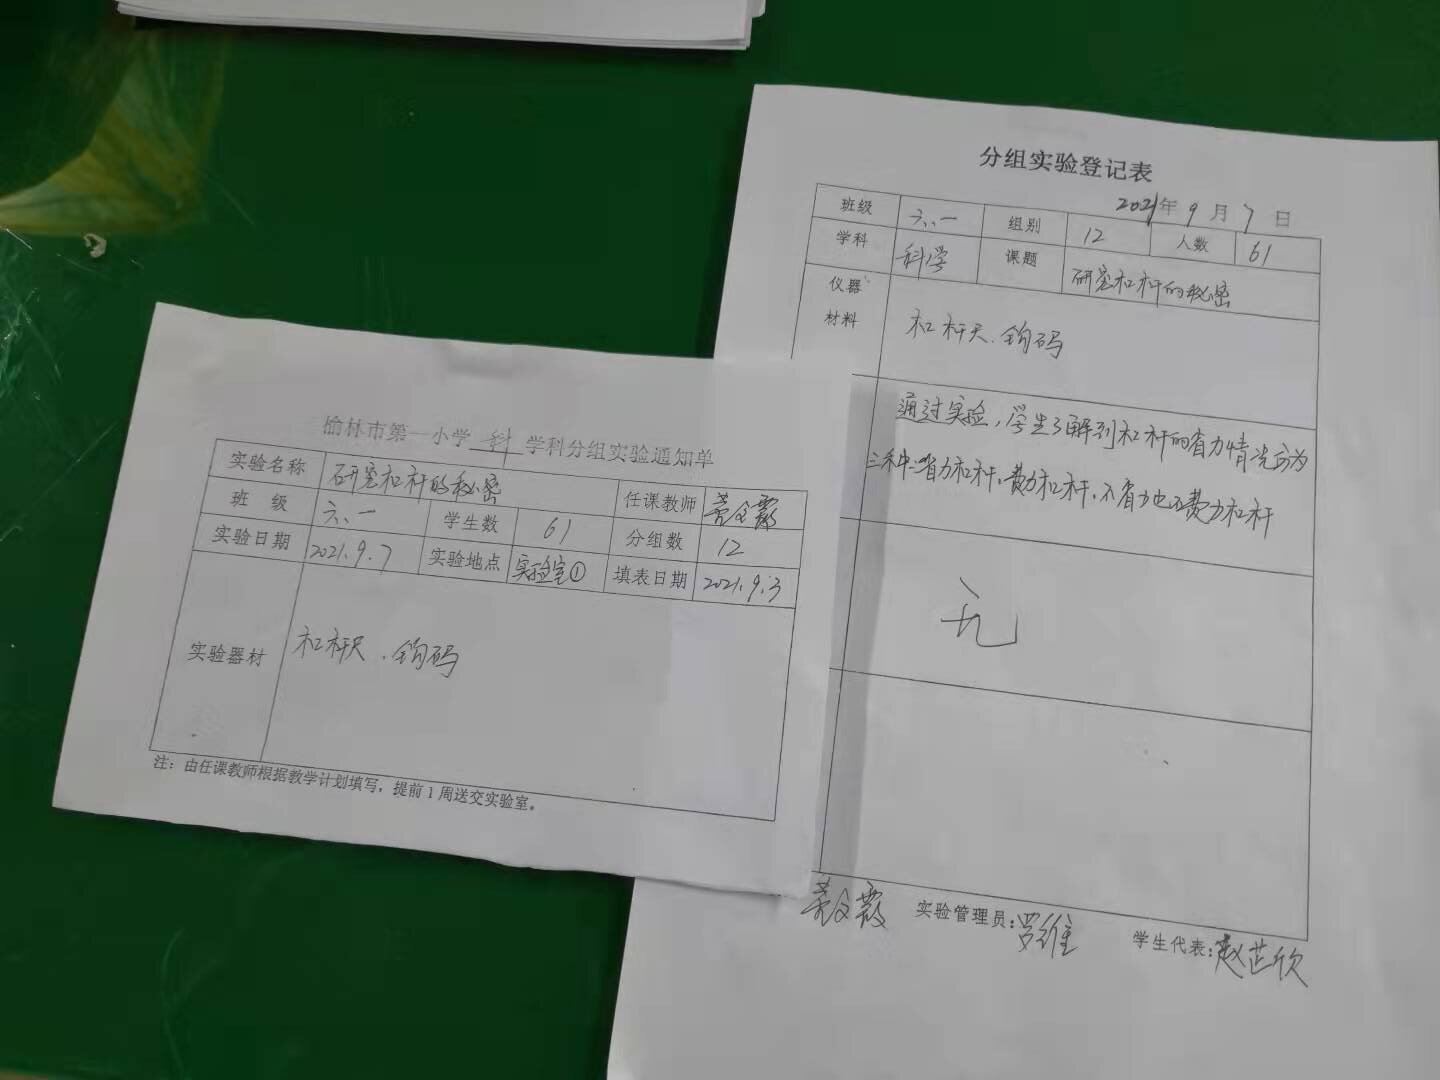 榆林市第一小学 科 学科分组实验通知单
实验名称 研究杠杆的秘密 任课教师
班 级 六、一 学生数 61 分组数 12
实验日期 2021.9.7 实验地点 实验室① 填表日期 2021.9.3
实验器材 杠杆尺、钩码
注：由任课教师根据教学计划填写，提前1周送交实验室。
分组实验登记表
2021年 9 月 7 日
班级 六、一 组别 12 人数 61
学科 科学 课题 研究杠杆的秘密
仪器
材料 杠杆尺、钩码
通过实验，学生了解到杠杆的省力情况分为
三种：省力杠杆、费力杠杆、不省力也不费力杠杆
无
实验管理员：罗维 学生代表：赵芷欣